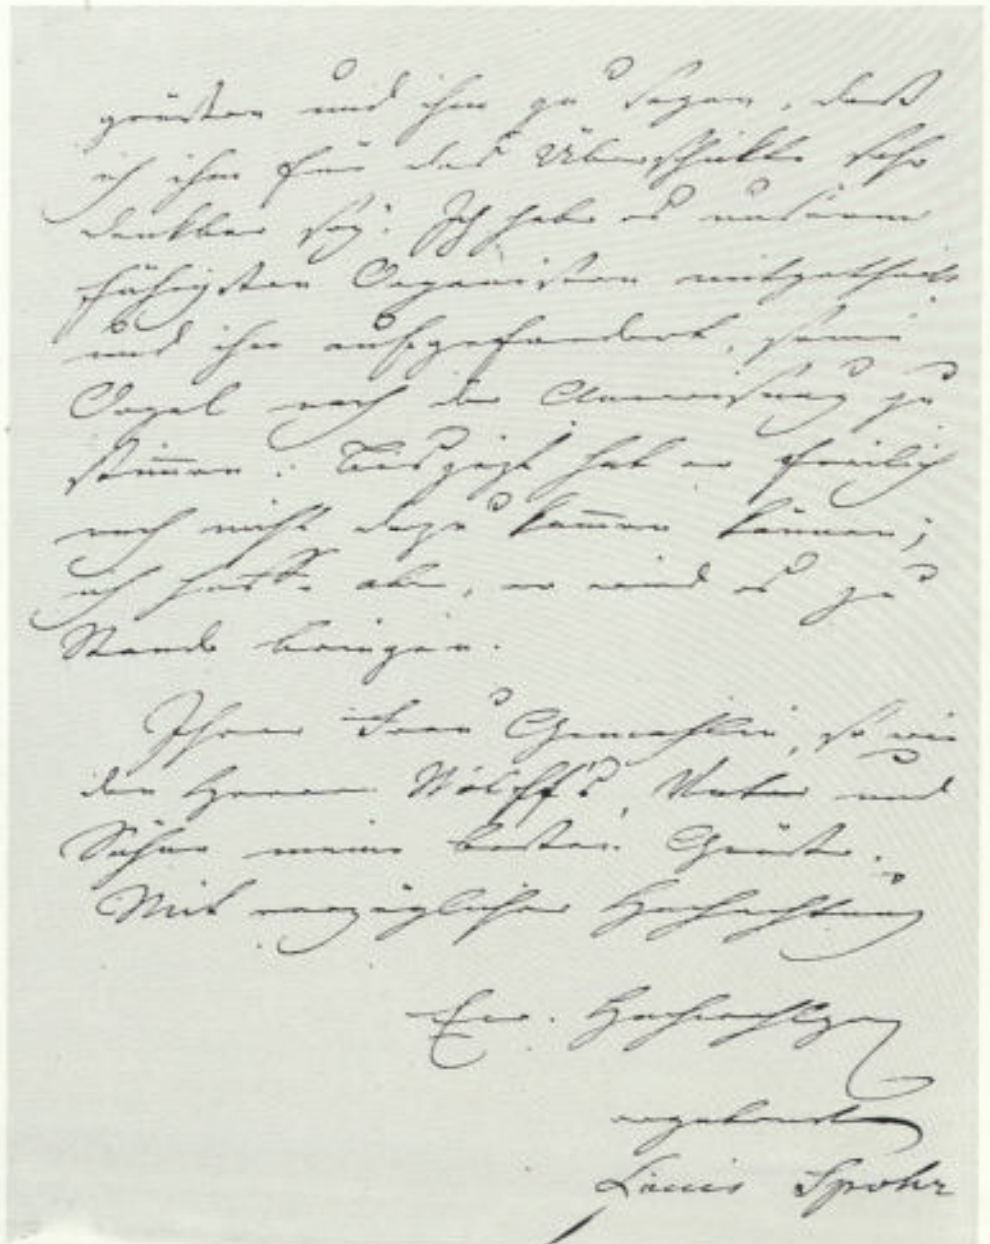 grüßen und ihm zu sagen, daß
ich ihm für das Überschickte sehr
dankbar sey. Ich habe es unserem
fähigsten Organisten mitgetheilt
und ihn aufgefordert, seine
Orgel nach der Anweisung zu
stimmen. Bis jezt hat er freilich
noch nicht dazu kommen können;
ich hoffe aber, er wird es zu
Stande bringen.
Ihrer Frau Gemahlin, so wie
den Herren Wolff's, Vater und
Söhne meine besten Grüße.
Mit vorzüglicher Hochachtung
Ew. Hochwohlgeb.
ergebenster
Louis Spohr